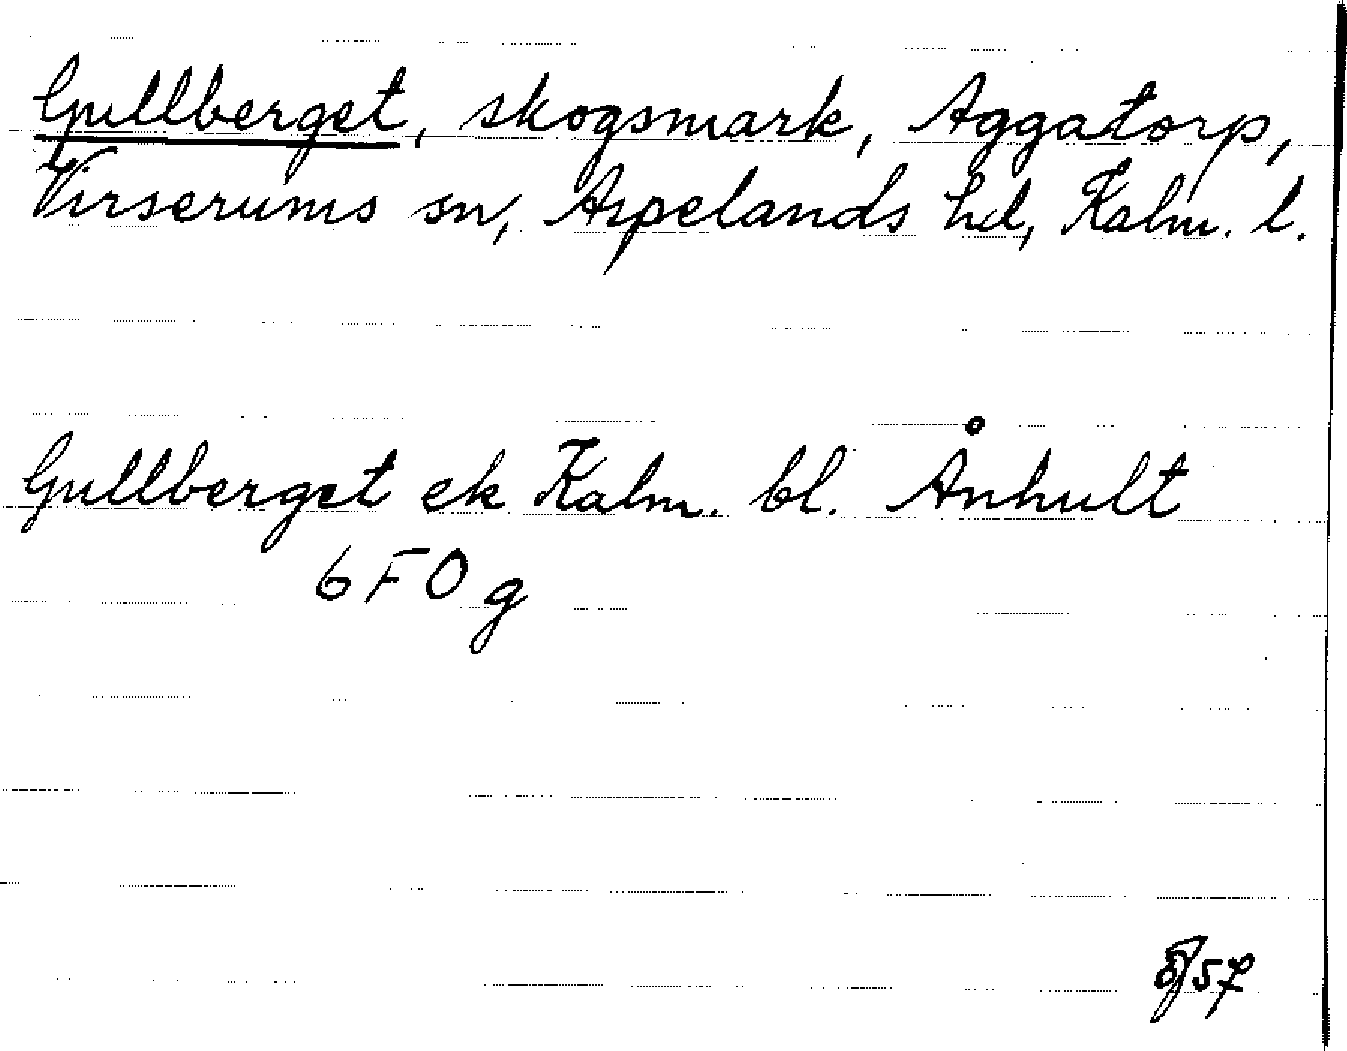 Gullberget, skogsmark, Aggatorp,
Virserums sn, Aspelands hd, Kalm. l.
Gullberget ek Kalm. bl. Ånhult
6 F O g
57